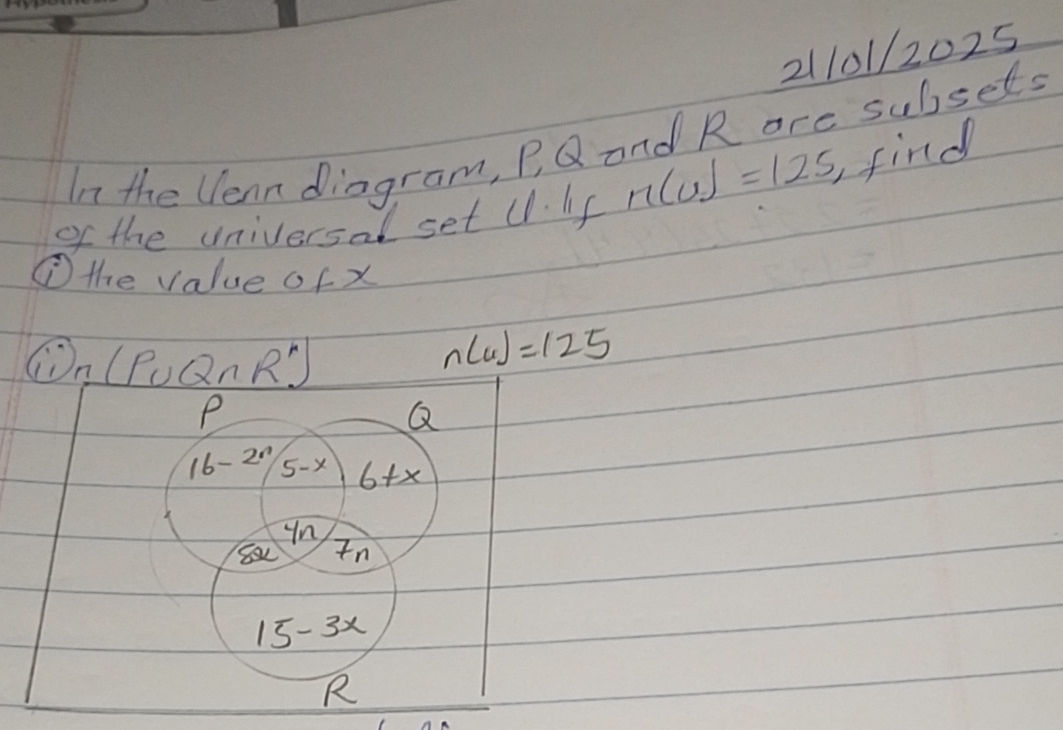 21/01/2025
In the Venn diagram, P, Q and R are subsets
of the universal set U. If n(u) = 125, find
(i) the value of x
(ii) n(P∪Q∩R')
n(u) = 125
P Q
16-2n 5-x 6+x
4n
8x 7n
15-3x
R